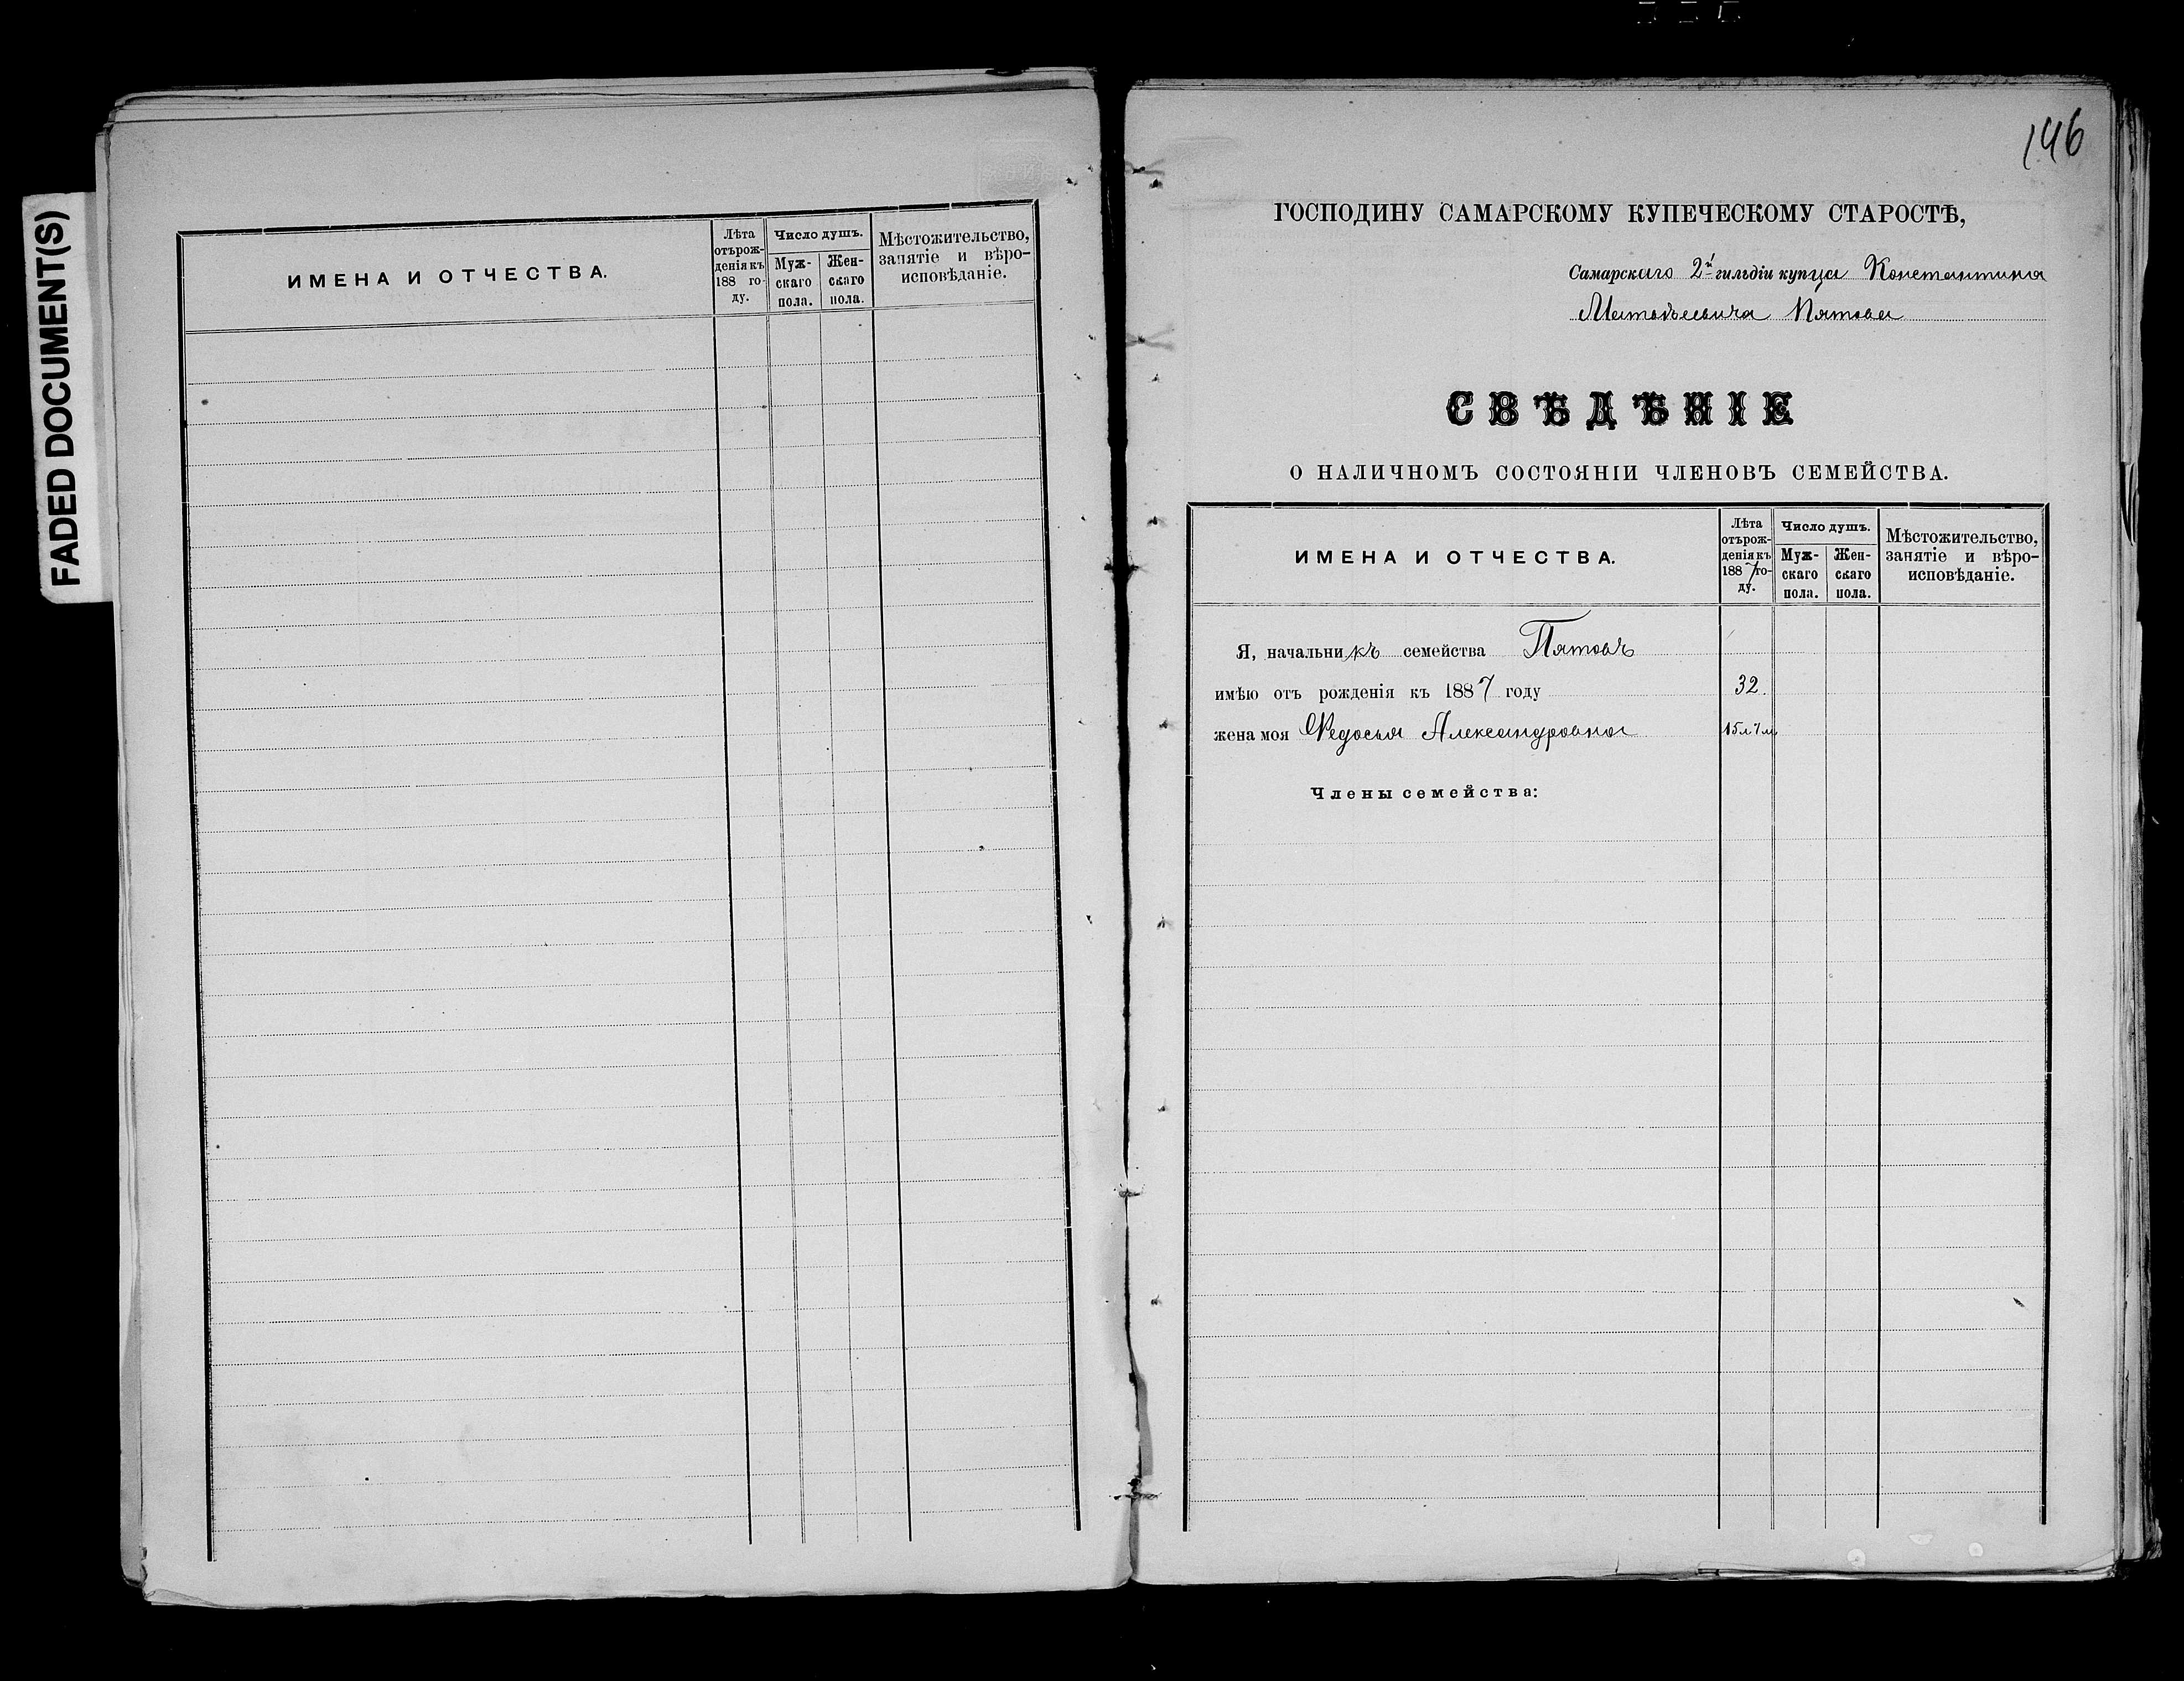 FADED DOCUMENT(S)
ИМЕНА И ОТЧЕСТВА.
Лѣта отърожденія къ 188 году.
Число душъ.
Мужскаго пола.
Женскаго пола.
Мѣстожительство, занятіе и вѣроисповѣданіе.
146
ГОСПОДИНУ САМАРСКОМУ КУПЕЧЕСКОМУ СТАРОСТѢ,
Самарскаго 2й гильдіи купца Константина
Матвѣевича Пятова
СВѢДѢНІЕ
О НАЛИЧНОМЪ СОСТОЯНІИ ЧЛЕНОВЪ СЕМЕЙСТВА.
ИМЕНА И ОТЧЕСТВА.
Лѣта отърожденія къ 1887 году.
Число душъ.
Мужскаго пола.
Женскаго пола.
Мѣстожительство, занятіе и вѣроисповѣданіе.
Я, начальникъ семейства Пятовъ
имѣю отъ рожденія къ 1887 году 32.
жена моя Федосья Александровна
Члены семейства: